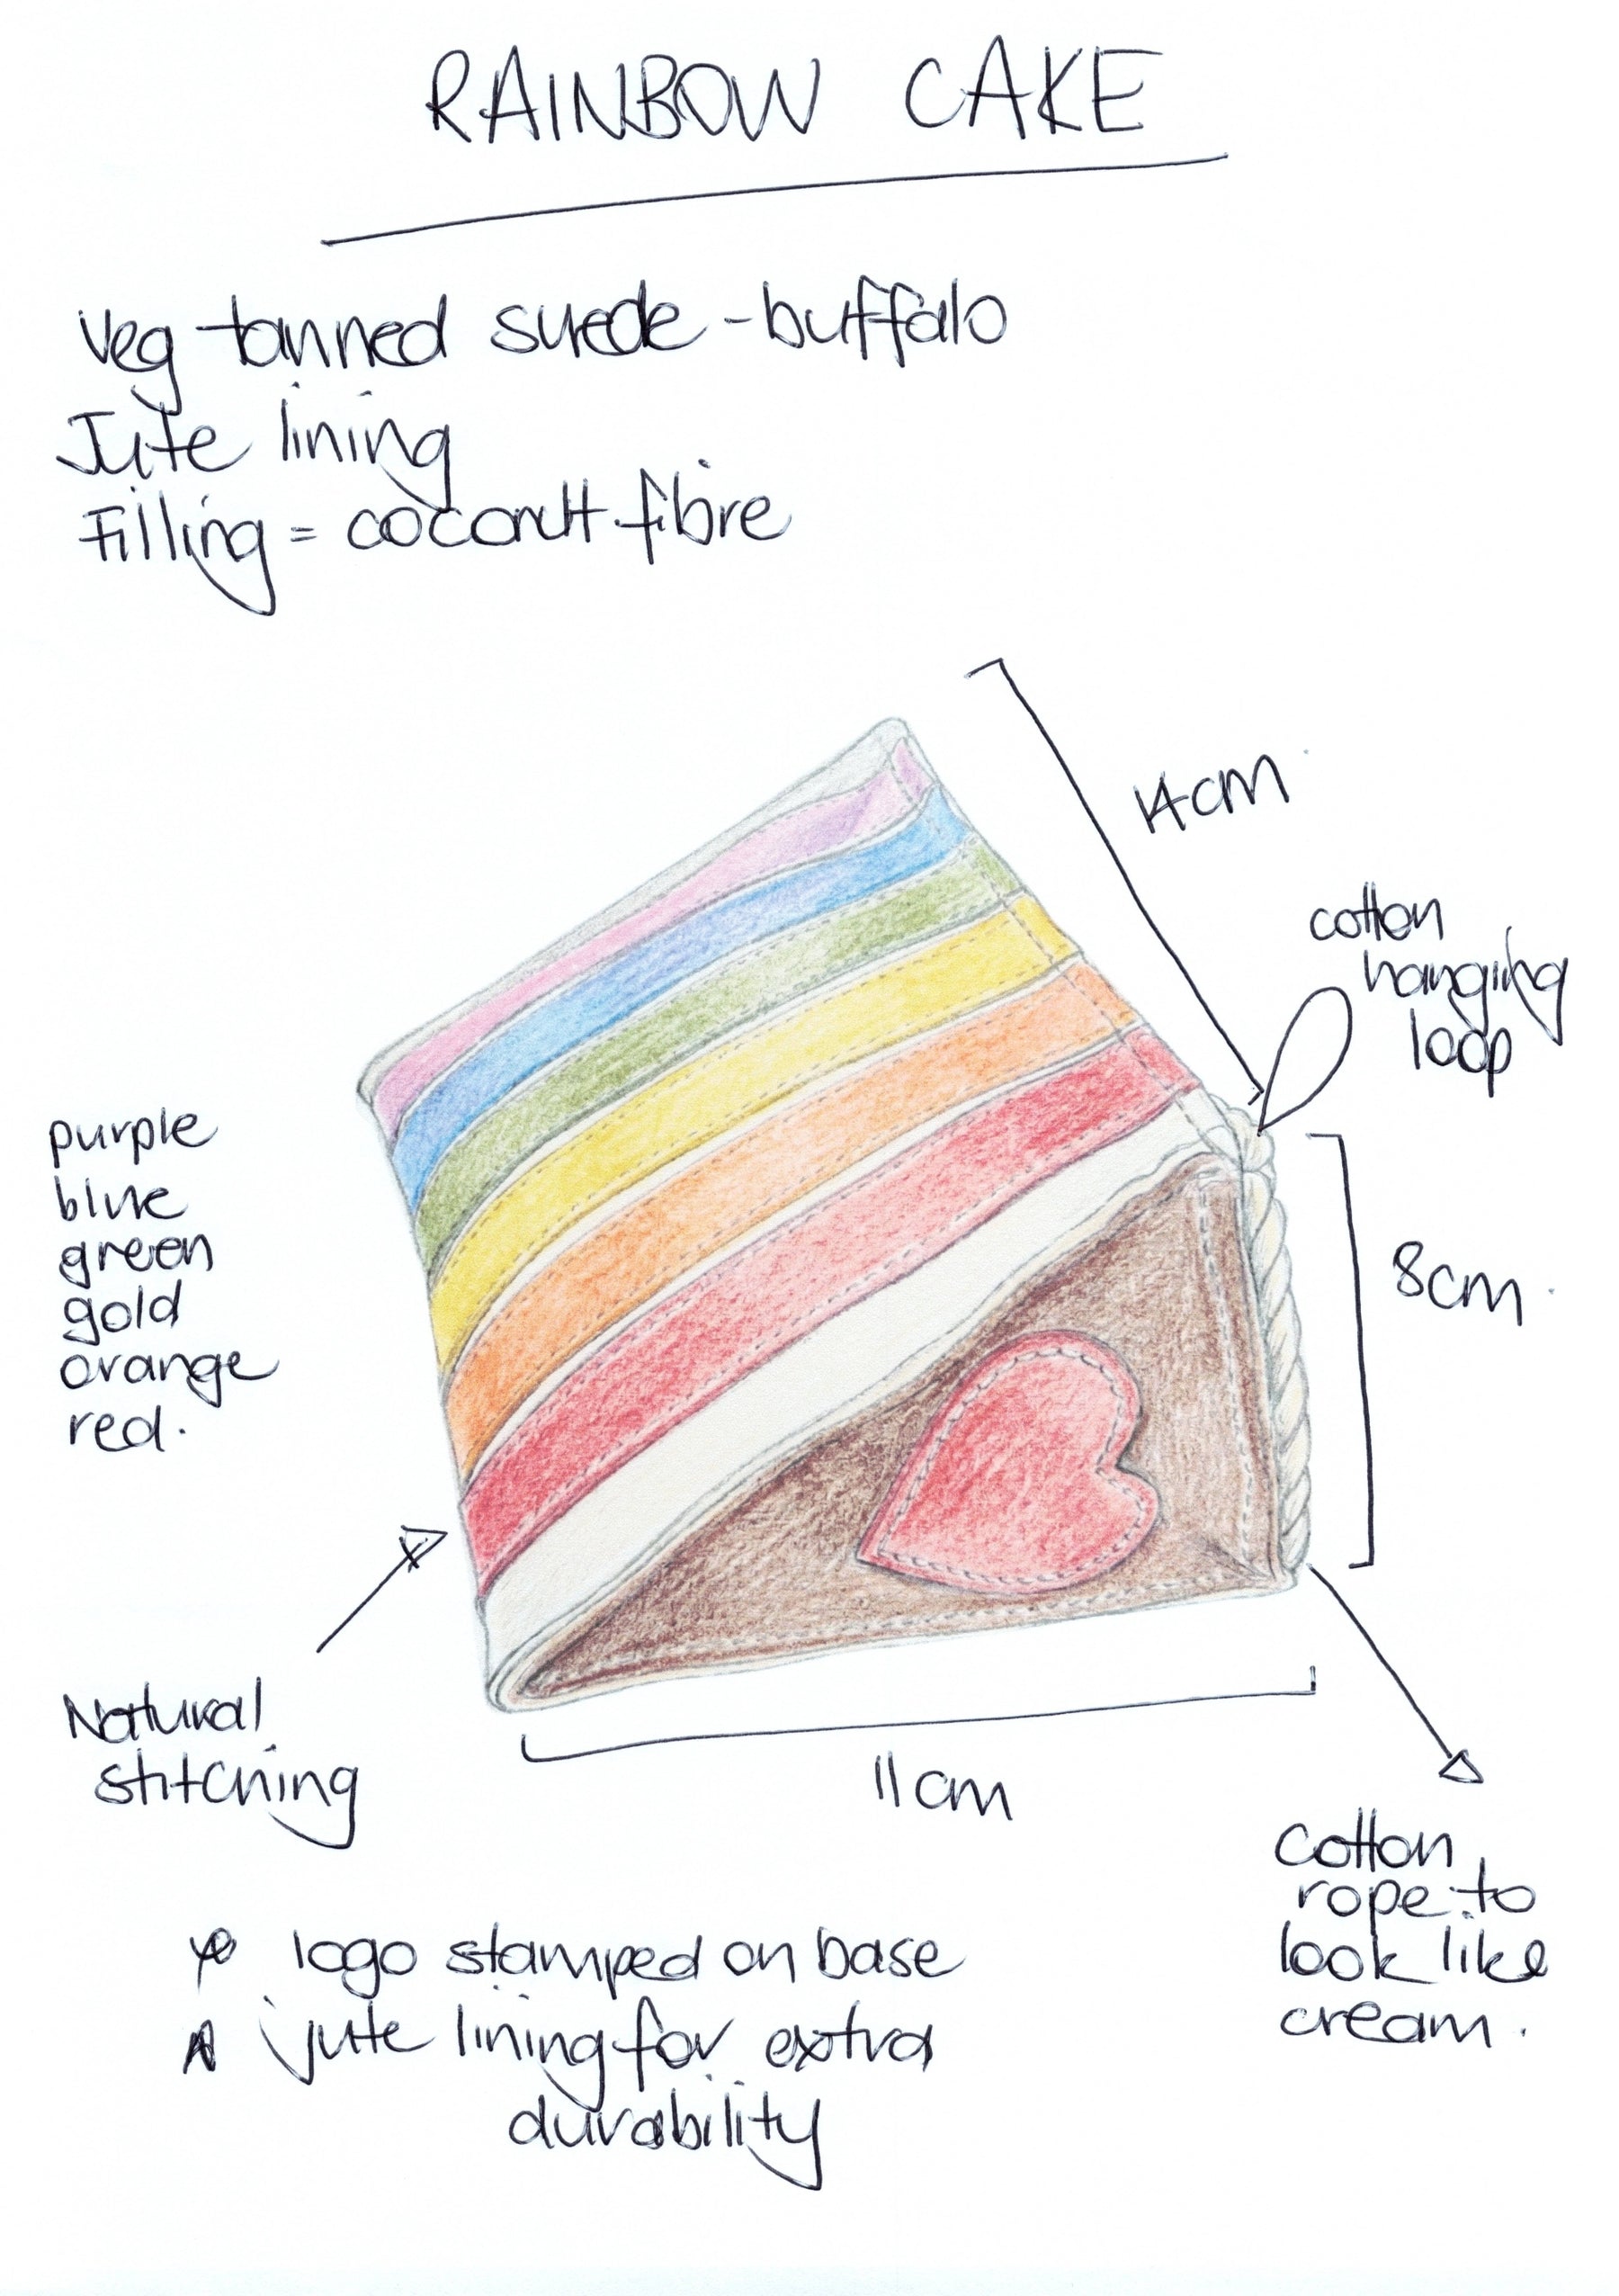 RAINBOW CAKE
Veg tanned suede - buffalo
Jute lining
Filling = coconut fibre
14cm
cotton
hanging
loop
purple
blue
green
gold
orange
red.
8cm
Natural
stitching
11cm
Cotton
rope to
look like
cream.
logo stamped on base
jute lining for extra
durability